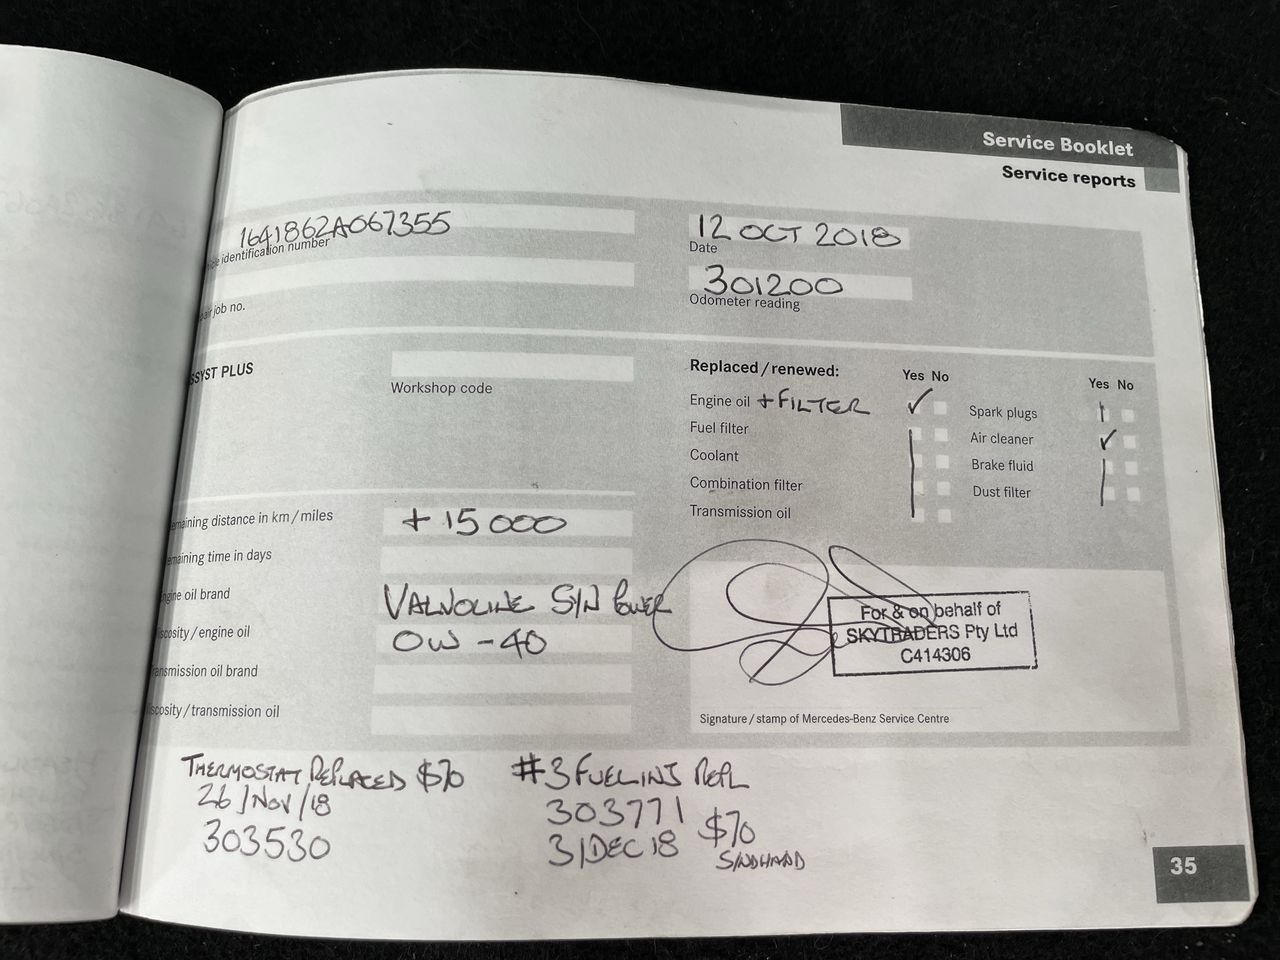 Service Booklet
Service reports
1641862A067355
identification number
12 OCT 2018
Date
301200
Odometer reading
job no.
PLUS
Workshop code
Replaced / renewed:
Yes No
Engine oil + FILTER
Fuel filter
Coolant
Combination filter
Transmission oil
Yes No
Spark plugs
Air cleaner
Brake fluid
Dust filter
distance in km / miles
+ 15 000
time in days
oil brand
VALVOLINE SYN POWER
/ engine oil
0W - 40
oil brand
/ transmission oil
For & on behalf of
SKYTRADERS Pty Ltd
C414306
Signature / stamp of Mercedes-Benz Service Centre
THERMOSTAT REPLACED $70
26/NOV/18
303530
#3 FUEL INJ REPL
303771
31DEC18
$70
S/NDHAND
35